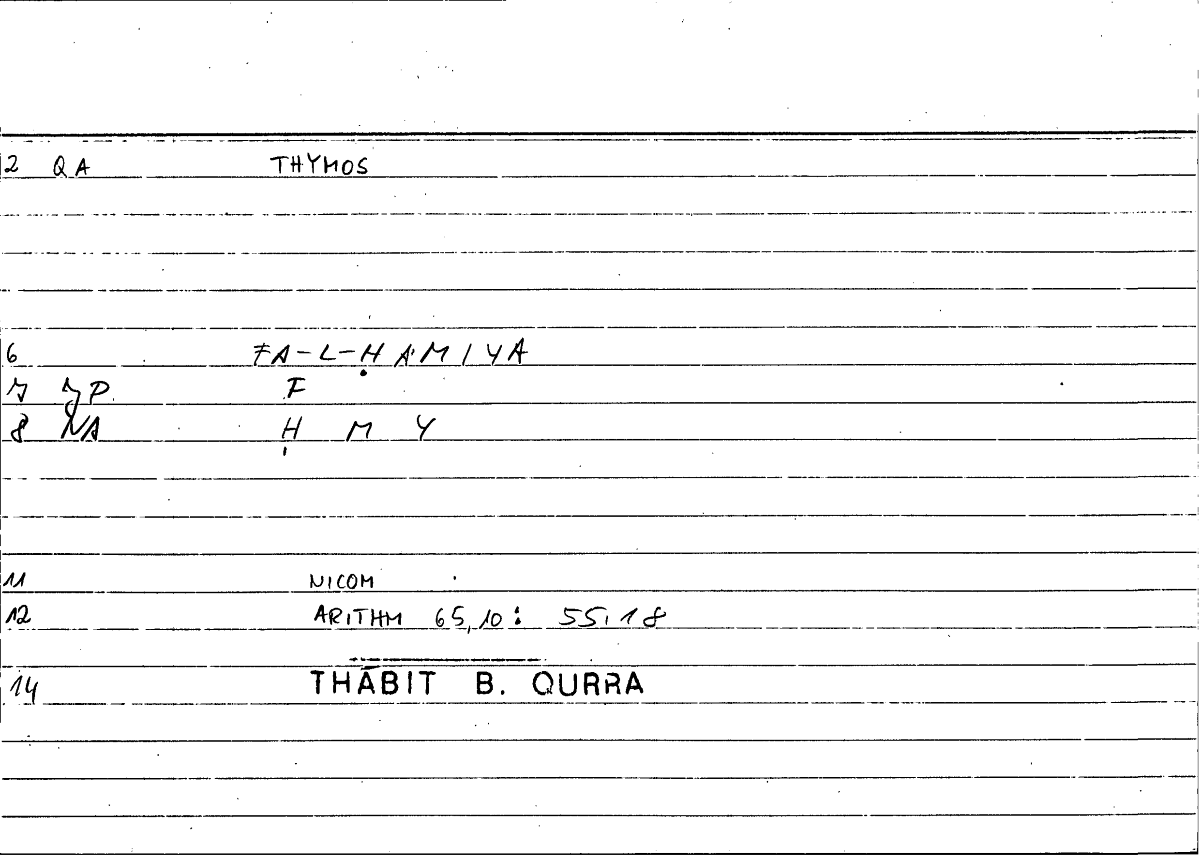 2 QA THYMOS
6 FA-L-ḤAMIYA
7 JP F
8 NA Ḥ M Y
11 NICOM
12 ARITHM 65,10: 55,18
14 THĀBIT B. QURRA